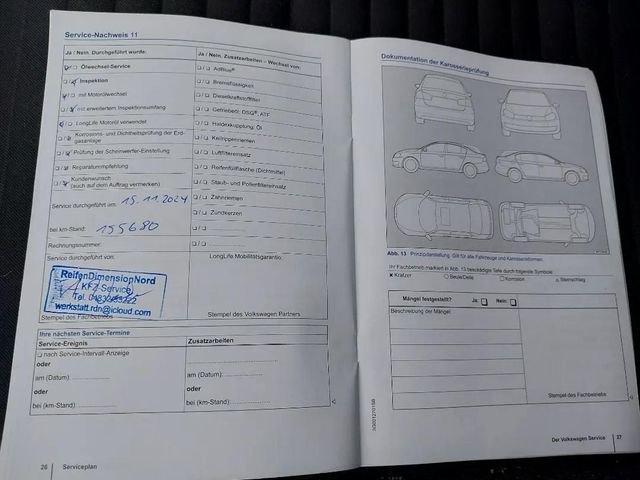 Service-Nachweis 11
Ja / Nein. Durchgeführt wurde:
Ölwechsel-Service
Inspektion
mit Motorölwechsel
mit erweitertem Inspektionsumfang
LongLife Motoröl verwendet
Korrosions- und Dichtheitsprüfung der Erdgasanlage
Prüfung der Scheinwerfer-Einstellung
Reparaturempfehlung
Kundenwunsch
(auch auf dem Auftrag vermerken)
Service durchgeführt am: 15.11.2024
bei km-Stand: 155680
Rechnungsnummer:
Service durchgeführt von:
ReifenDimensionNord
KFZ Service
werkstatt.rdn@icloud.com
Stempel des Fachbetriebs
Ja / Nein. Zusatzarbeiten – Wechsel von:
AdBlue®
Bremsflüssigkeit
Dieselkraftstofffilter
Getriebeöl: DSG®, ATF
Haldexkupplung: Öl
Keilrippenriemen
Luftfiltereinsatz
Reifenfüllflasche (Dichtmittel)
Staub- und Pollenfiltereinsatz
Zahnriemen
Zündkerzen
LongLife Mobilitätsgarantie:
Stempel des Volkswagen Partners
Ihre nächsten Service-Termine
Service-Ereignis Zusatzarbeiten
nach Service-Intervall-Anzeige
oder
am (Datum): am (Datum):
oder oder
bei (km-Stand): bei (km-Stand):
26 Serviceplan
Dokumentation der Karosserieprüfung
Abb. 13 Prinzipdarstellung: Gilt für alle Fahrzeuge und Karosserieformen.
Ihr Fachbetrieb markiert in Abb. 13 beschädigte Teile durch folgende Symbole:
Kratzer Beule/Delle Korrosion Steinschlag
Mängel festgestellt? Ja: Nein:
Beschreibung der Mängel:
Stempel des Fachbetriebs
Der Volkswagen Service 27